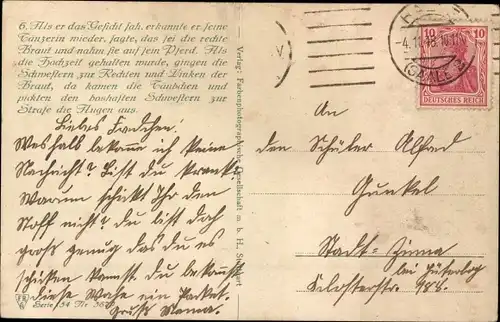 6. Als er das Gesicht sah, erkannte er seine
Tänzerin wieder, sagte, das sei die rechte
Braut und nahm sie auf sein Pferd. Als
die Hochzeit gehalten wurde, gingen die
Schwestern zur Rechten und Linken der
Braut, da kamen die Täubchen und
pickten den boshaften Schwestern zur
Strafe die Augen aus.
Liebes
Weshalb bekomme ich keine
Nachricht? Bist du krank?
Warum schickt Ihr den
Stoff nicht? Du bist doch
groß genug das du es
schicken kannst. Du bekommst
diese ein Paket.
Gruß Mama.
Serie 54 Nr.
Verlag: Farbenphotographische Gesellschaft m. b. H., Stuttgart
(SAALE)
10 10
DEUTSCHES REICH
An
den Schüler Alfred
Gunkel
Stadt-Zinna
bei Jüterbog
Klosterstr. 98